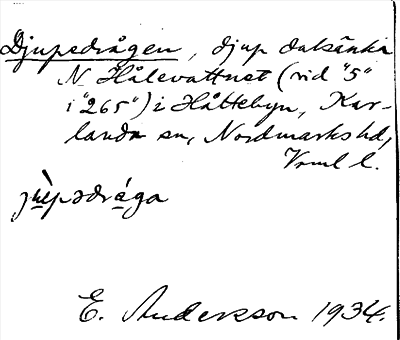 Djupedrågen, djup dalsänka
N Hålevattnet (vid "5"
i "265") i Håltebyn, Kar-
landa sn, Nordmarks hd,
Vrml l.
jùpədrága
E. Andersson 1934.